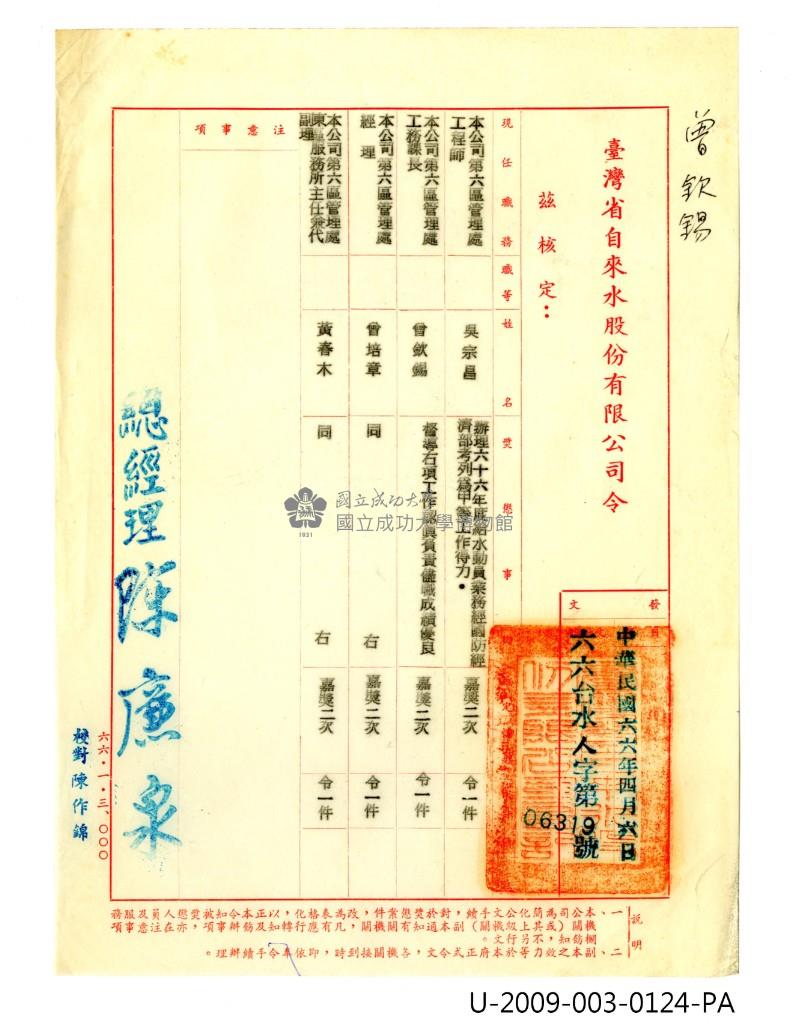 曾欽錫
臺灣省自來水股份有限公司令
茲核定：
發文
中華民國六六年四月六日
六六台水人字第06319號
現任職務 職等 姓名 獎懲事
本公司第六區管理處工程師 吳宗昌 辦理六十六年度給水動員業務經國防經濟部考列為甲等工作得力。 嘉獎二次 令一件
本公司第六區管理處工務課長 曾欽錫 督導右項工作認真負責儘職成績優良 嘉獎二次 令一件
本公司第六區管理處經理 曾培章 同右 嘉獎二次 令一件
本公司第六區管理處東區服務所主任兼代副理 黃春木 同右 嘉獎二次 令一件
注意事項
總經理 陳廉泉
六六．一．三、○○○
校對 陳作錦
說明
一、本公司為簡化公文手續，對於獎懲案件，改為表格化，以正本令知被獎懲人員及服務
機關（或上級機關）副本通知有關機關，凡有應行轉知及飭辦事項，亦在注意事項
欄飭知，不另行文。
二、副本之效力等於本府正式令文，各機關接到時，即依奉令手續辦理。
國立成功大學
國立成功大學博物館
1931
U-2009-003-0124-PA